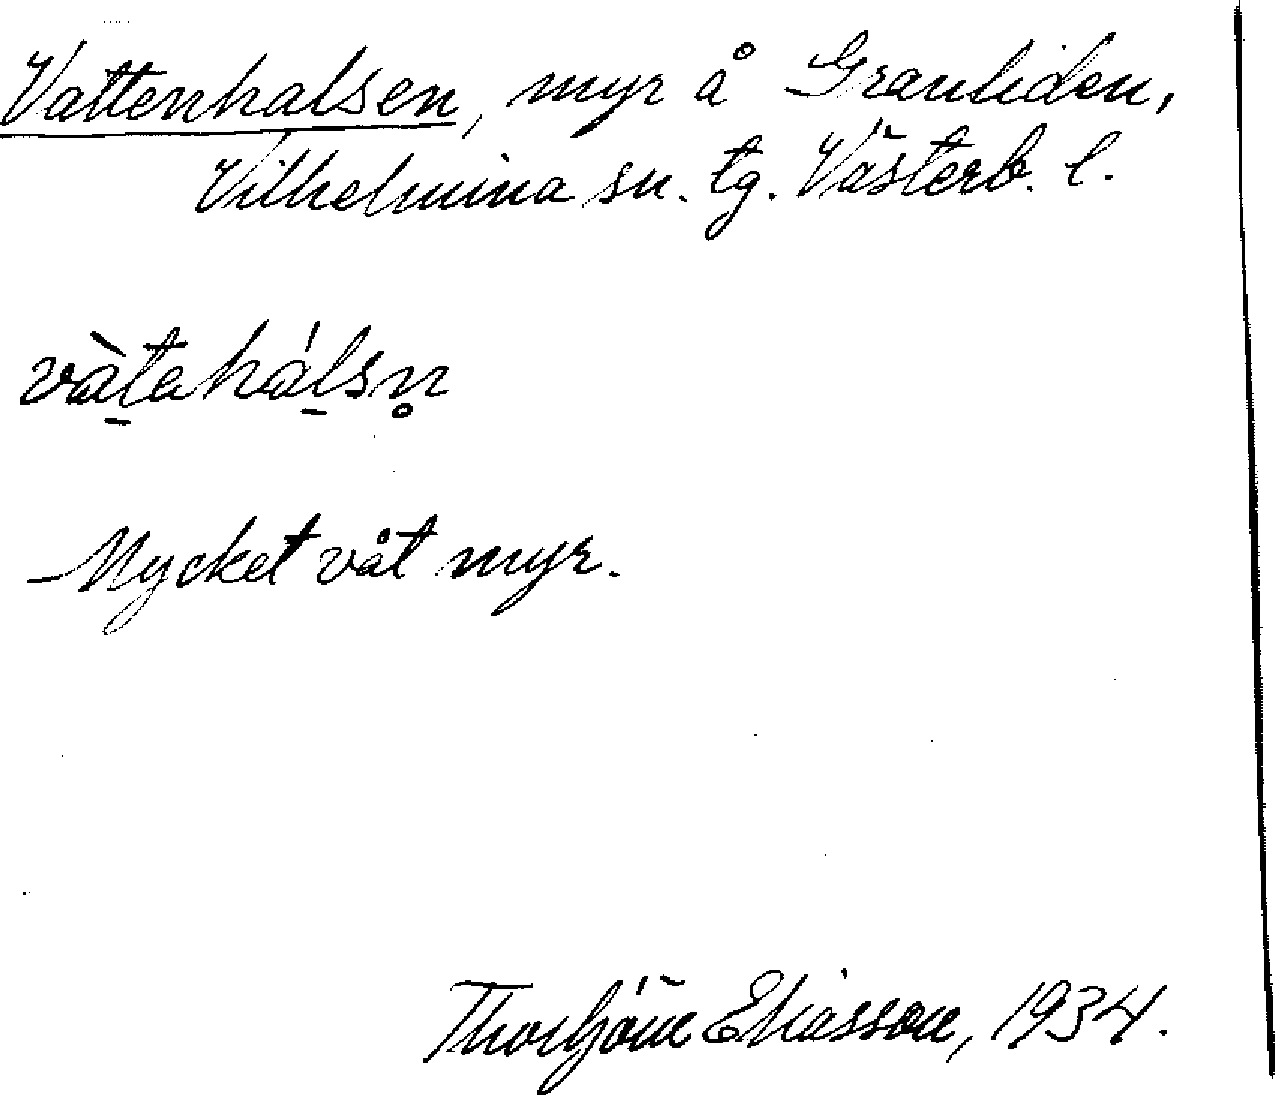 Vattenhalsen, myr å Granliden,
Vilhelmina sn. tg. Västerb. l.
vàta hálsn̥
Mycket våt myr.
Thorbjörn Eliasson, 1934.